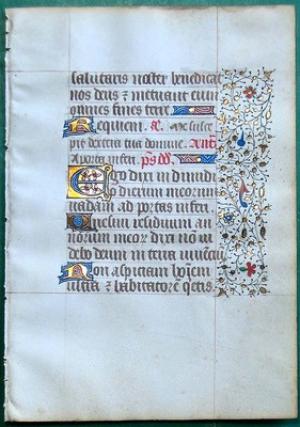 salutaris noster benedicat
nos deus ⁊ metuant eum
omnes fines terre
Requiem. Me suscepit
pit dextera tua domine. Ant̃
A porta inferi. ps̃
Ego dixi in dimidio
dierum meorum
vadam ad portas inferi.
Quesivi residuum an
norum meoꝝ dixi nō vi
debo deum in terra viventi
Non aspiciam hoiem
ultra ⁊ habitatorē